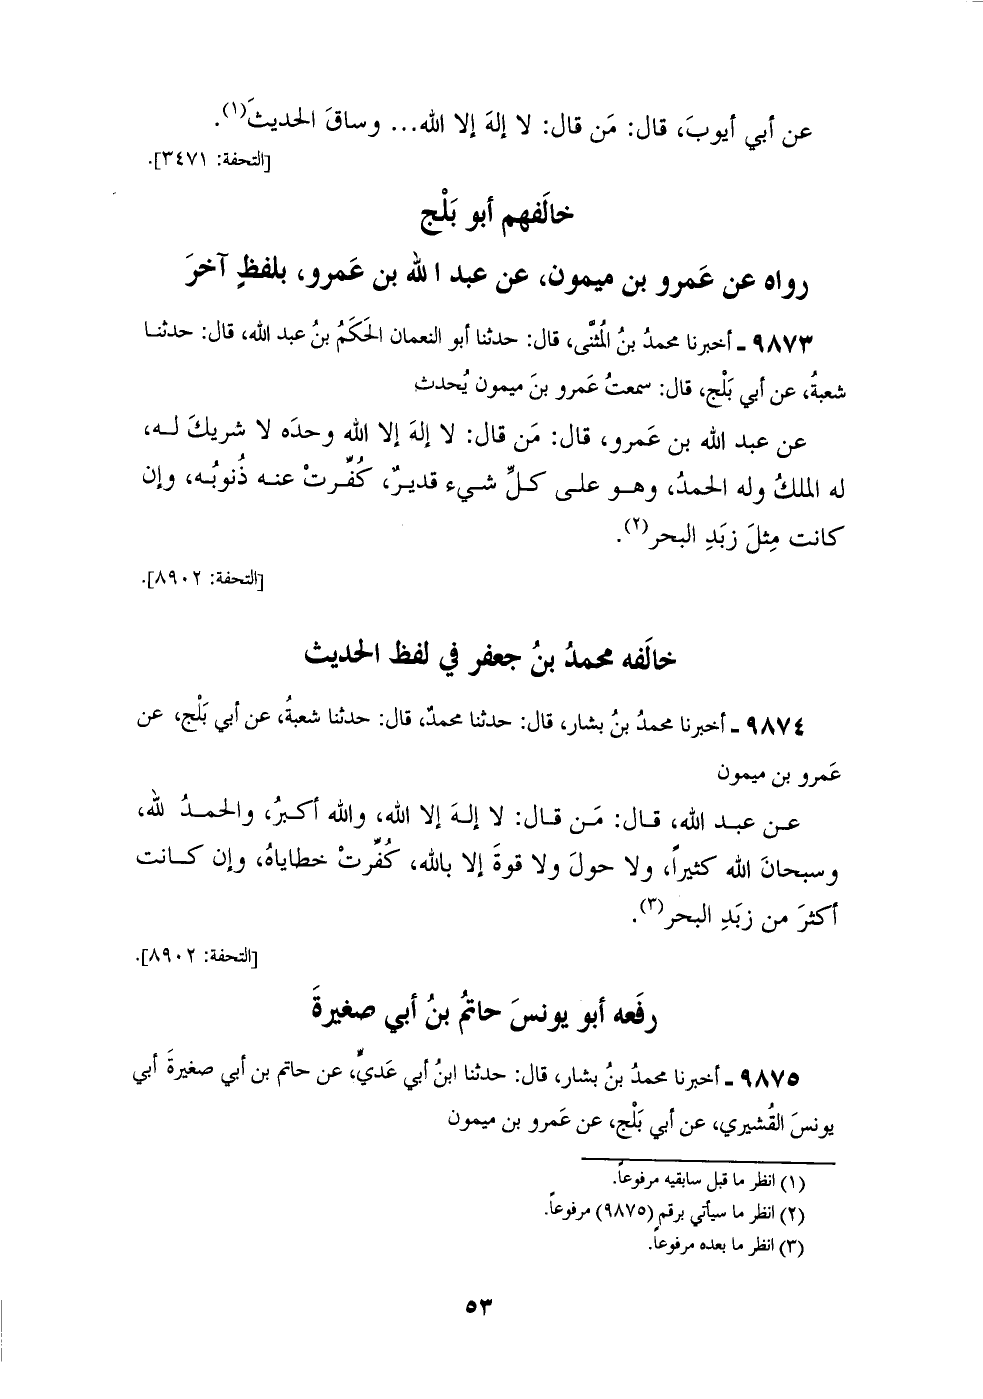 عن أبي أيوبَ، قال: مَن قال: لا إلهَ إلا الله... وساقَ الحديثَ(١).
[التحفة: ٣٤٧١].
خالَفهم أبو بَلْج
رواه عن عَمرو بن ميمون، عن عبد الله بن عَمرو، بلفظٍ آخرَ
٩٨٧٣ ـ أخبرنا محمدُ بنُ المُثنَّى، قال: حدثنا أبو النعمان الحَكَمُ بنُ عبد الله، قال: حدثنا
شعبةُ، عن أبي بَلْج، قال: سمعتُ عَمرو بنَ ميمون يُحدث
عن عبد الله بن عَمرو، قال: مَن قال: لا إلهَ إلا الله وحدَه لا شريكَ له،
له الملكُ وله الحمدُ، وهو على كلِّ شيء قديرٌ، كُفِّرتْ عنه ذُنوبُه، وإن
كانت مِثلَ زبَدِ البحر(٢).
[التحفة: ٨٩٠٢].
خالَفه محمدُ بنُ جعفر في لفظ الحديث
٩٨٧٤ ـ أخبرنا محمدُ بنُ بشار، قال: حدثنا محمدٌ، قال: حدثنا شعبةُ، عن أبي بَلْج، عن
عَمرو بن ميمون
عن عبد الله، قال: مَن قال: لا إلهَ إلا الله، والله أكبرُ، والحمدُ لله،
وسبحانَ الله كثيراً، ولا حولَ ولا قوةَ إلا بالله، كُفِّرتْ خطاياهُ، وإن كانت
أكثرَ من زبَدِ البحر(٣).
[التحفة: ٨٩٠٢].
رفَعه أبو يونسَ حاتمُ بنُ أبي صغيرةَ
٩٨٧٥ ـ أخبرنا محمدُ بنُ بشار، قال: حدثنا ابنُ أبي عَديٍّ، عن حاتم بن أبي صغيرةَ أبي
يونسَ القُشيري، عن أبي بَلْج، عن عَمرو بن ميمون
(١) انظر ما قبل سابقيه مرفوعاً.
(٢) انظر ما سيأتي برقم (٩٨٧٥) مرفوعاً.
(٣) انظر ما بعده مرفوعاً.
٥٣